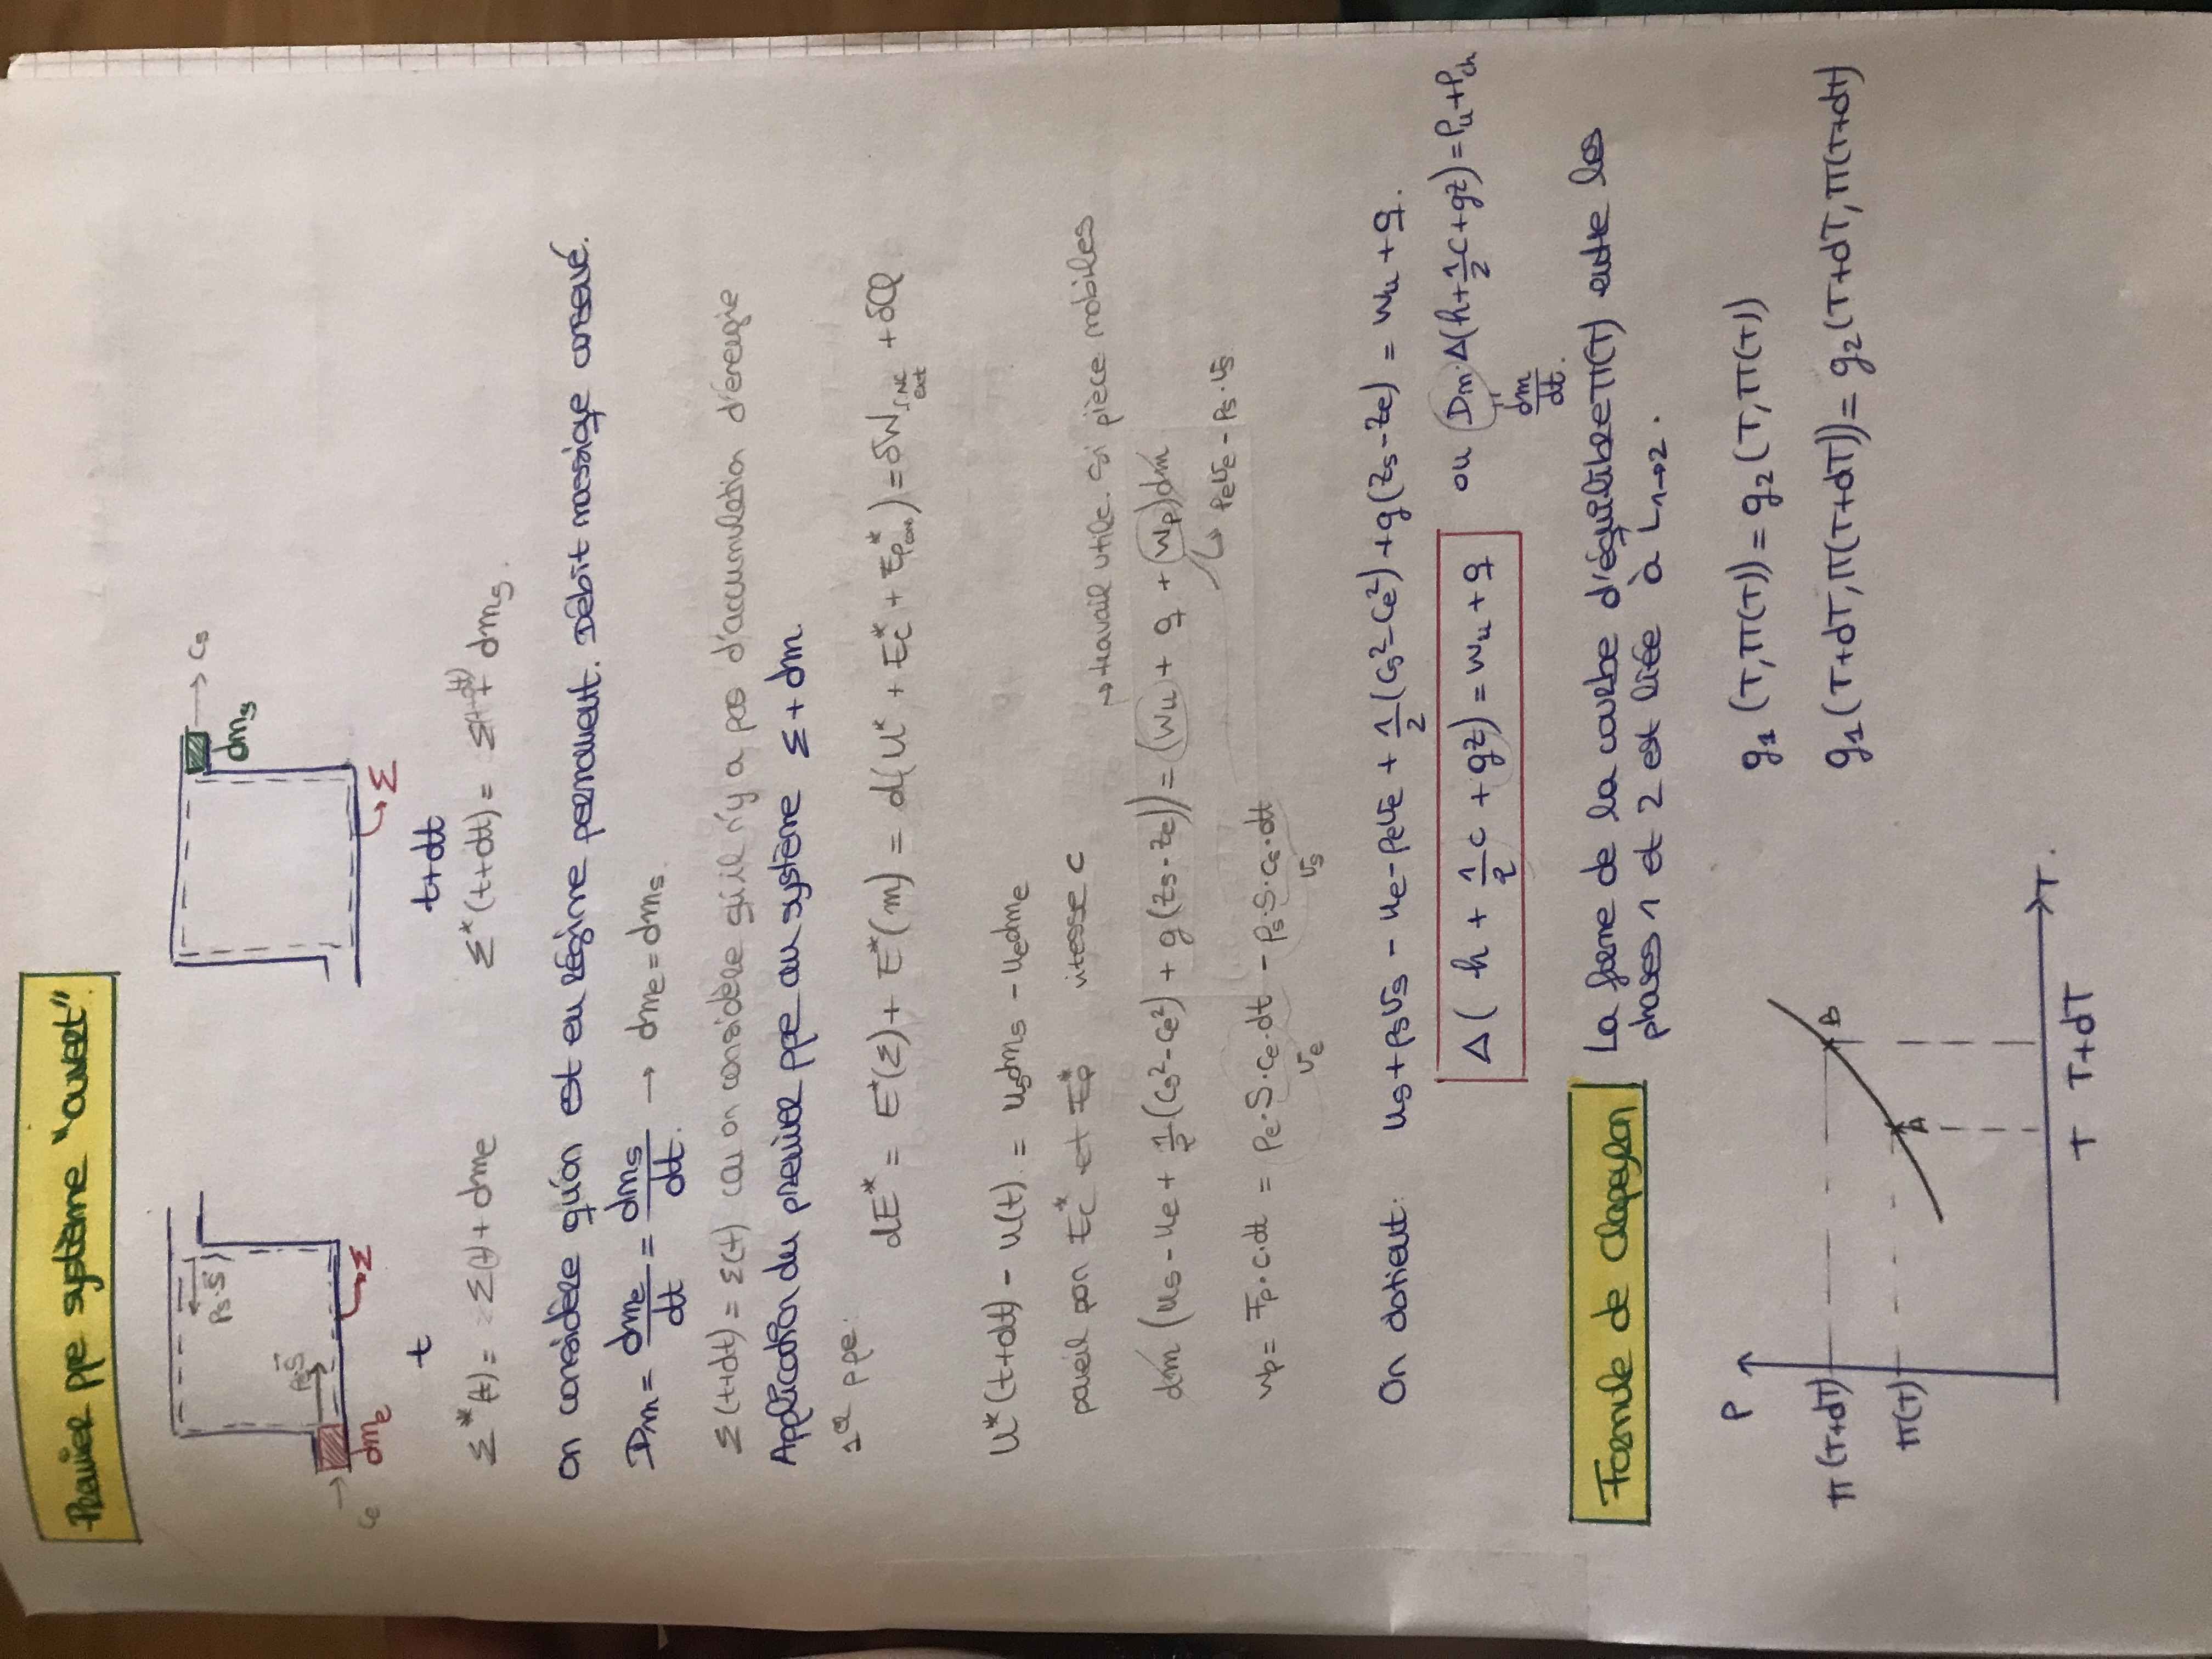 Premier ppe système "ouvert".
Ps·S⃗
→ Cs
dms
S⃗
Ce
dme
Σ
Σ
t
t+dt
Σ*(t) = Σ(t) + dme
Σ*(t+dt) = Σ(t+dt) + dms.
On considère qu'on est en régime permanent. Débit massique conservé.
Dm = dme/dt = dms/dt. → dme = dms.
Σ(t+dt) = Σ(t) car on considère qu'il n'y a pas d'accumulation d'énergie
Application du premier ppe au système Σ + dm.
1er ppe:
dE* = E*(Σ) + E*(m) = d(U* + Ec* + Ep*) = δW NC ext + δQ
U*(t+dt) - u(t) = usdms - uedme
pareil pour Ec* et Ep* vitesse c
→ travail utile. Si pièce mobiles
dm (us - ue + 1/2 (cs² - ce²) + g(zs - ze)) = (wu + q + wp)dm
↳ peve - ps·vs
wp = Fp·c·dt = pe·S·ce·dt - ps·S·cs·dt
ve vs
On obtient: us + psvs - ue - peve + 1/2 (cs² - ce²) + g(zs - ze) = wu + q.
Δ( h + 1/2 c + gz) = wu + q
ou Dm·Δ(h + 1/2 c + gz) = Pu + Pch
"
dm/dt.
Formule de Clapeyron
La forme de la courbe d'équilibre π(T) entre les
phases 1 et 2 est liée à L1→2.
P
g1 (T, π(T)) = g2 (T, π(T))
π(T+dT)
B
g1 (T+dT, π(T+dT)) = g2 (T+dT, π(T+dT)
π(T)
A
T.
T T+dT